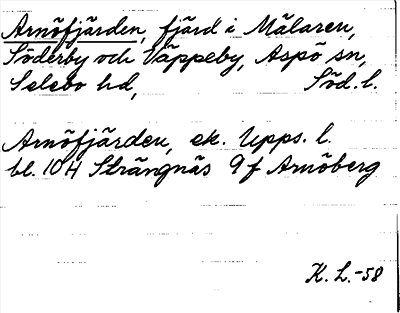 Arnöfjärden, fjärd i Mälaren,
Söderby och Väppeby, Aspö sn,
Selebo hd, Söd. l.
Arnöfjärden, ek. Upps. l.
bl. 10H Strängnäs 9f Arnöberg
K. L. -58